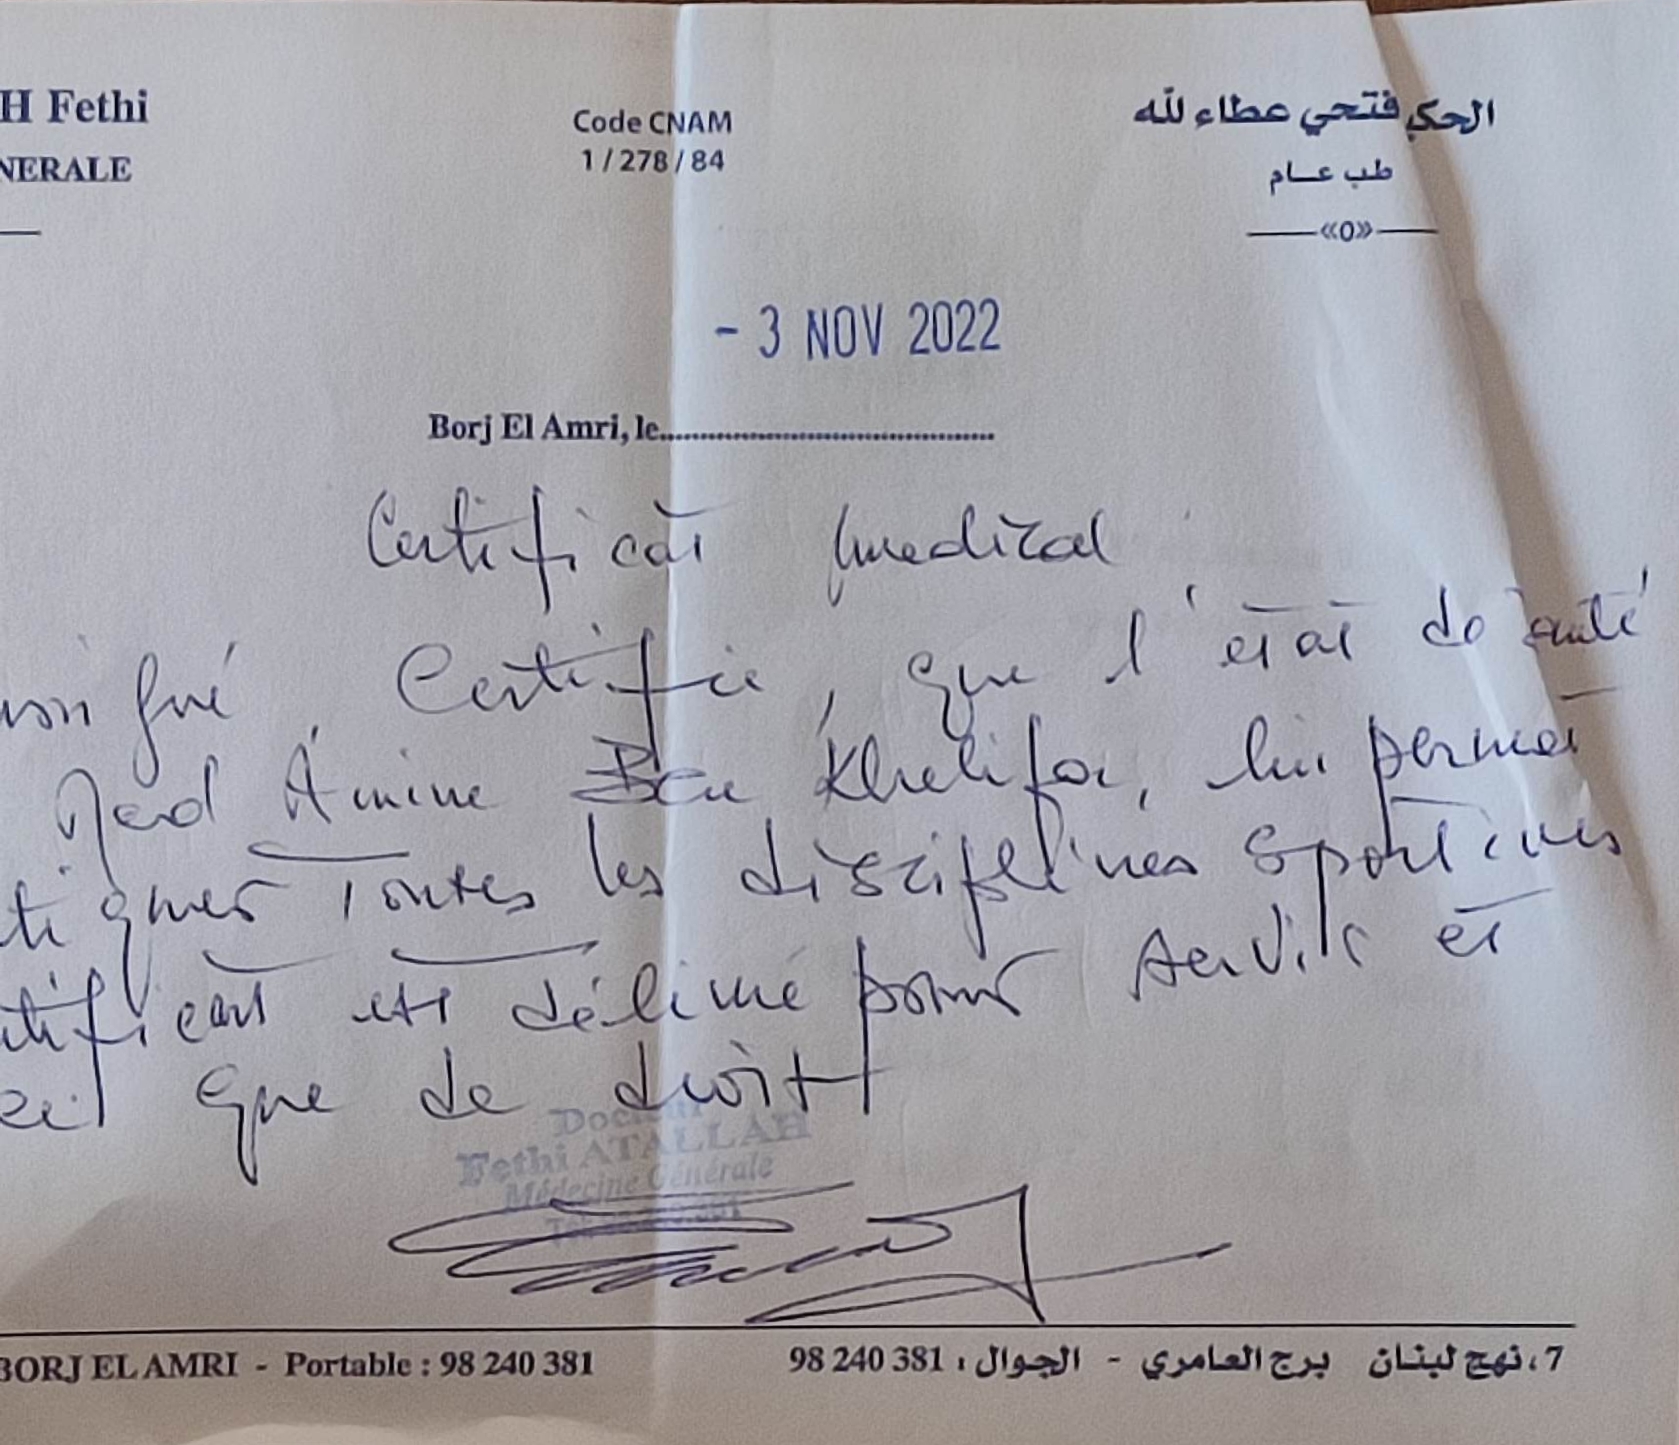 H Fethi
NERALE
Code CNAM
1 / 278 / 84
الحكيم فتحي عطاء لله
طب عـــام
«0»
- 3 NOV 2022
Borj El Amri, le
Certificat medical
certifie, que l'état de santé
Med Amine Ben Khelifa, lui permet
tiquer toutes les disciplines sportives
tificat est délivré pour servir et
que de droit
Docteur
Fethi ATALLAH
Médecine Générale
BORJ EL AMRI - Portable : 98 240 381
7، نهج لبنان برج العامري - الجوال : 98 240 381